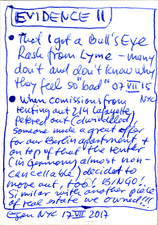 EVIDENCE II
• That I got a Bull's Eye
Rash from Lyme – many
don't and don't know why
they feel so "bad" 07 VII 15
NYC
• When comissions from
renting out 214 Lafayette
petered out (dwindled),
Someone made a great offer
for our Berlin apartment +
on top of that the renter
(in Germany almost non-
cancellable) decided to
move out, too! BINGO!
Similar with another piece
of real estate we owned!!!
NYC 17 VII 2017